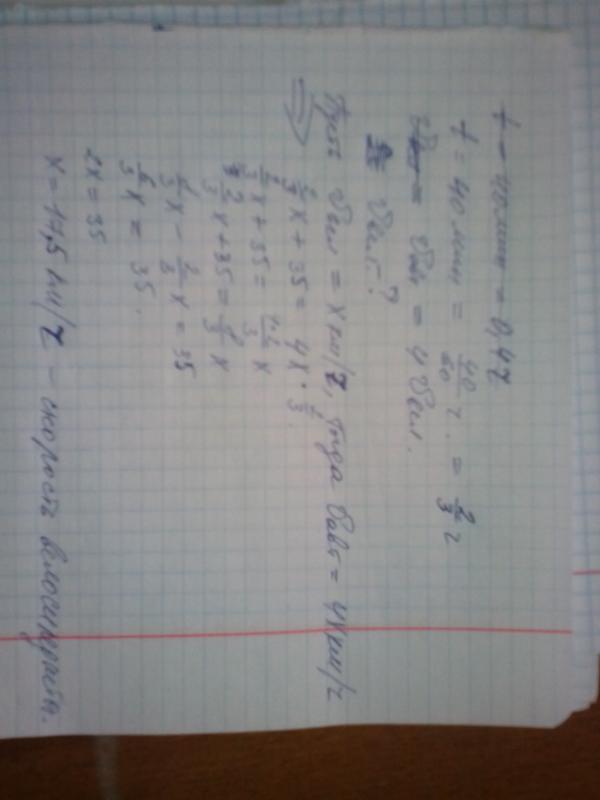 t - 40 мин = 0,4 ч
t = 40 мин = 40/60 ч. = 2/3 ч
Vавт = 4 Vвел.
Vвел.?
Пусть Vвел = x км/ч, тогда Vавт = 4x км/ч
⇒ 2/3x + 35 = 4x · 2/3.
2/3x + 35 = 4·2/3 x
2/3x + 35 = 8/3 x
8/3x - 2/3x = 35
6/3x = 35.
2x = 35
x = 17,5 км/ч - скорость велосипедиста.